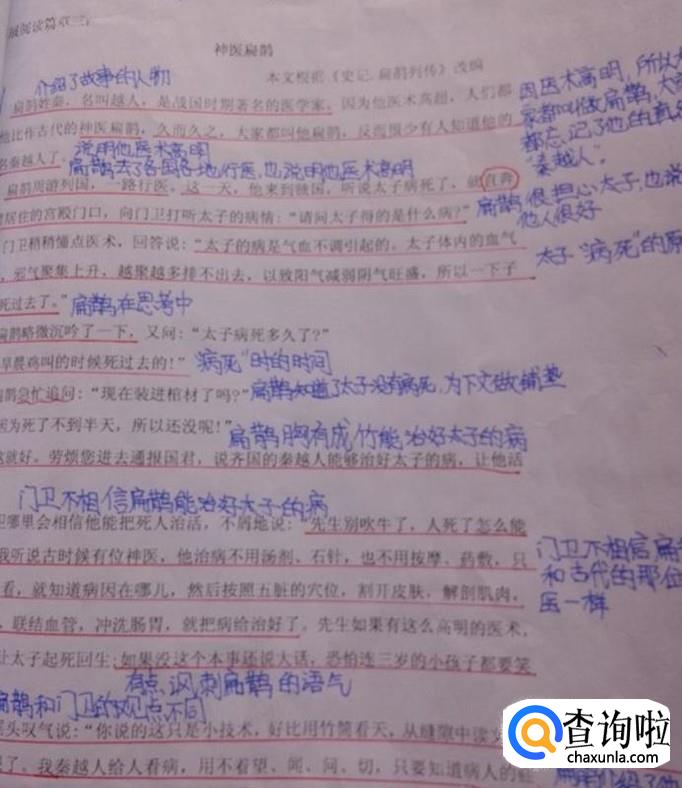 展阅读篇章三:
神医扁鹊
介绍了故事的人物
本文根据《史记.扁鹊列传》改编
扁鹊姓秦,名叫越人,是战国时期著名的医学家。因为他医术高超,人们都
他比作古代的神医扁鹊,久而久之,大家都叫他扁鹊,反而很少有人知道他的
名秦越人了。
因医术高明,所以大
家都叫做扁鹊,大
都忘记了他的真名
“秦越人”。
说明他医术高明
扁鹊去了各国各地行医,也说明他医术高明
扁鹊周游列国,一路行医。这一天,他来到虢国,听说太子病死了,就直奔
居住的宫殿门口,向门卫打听太子的病情:“请问太子得的是什么病?”
扁鹊很担心太子,也说
他人很好
门卫稍稍懂点医术,回答说:“太子的病是气血不调引起的。太子体内的血气
,邪气聚集上升,越聚越多排不出去,以致阳气减弱阴气旺盛,所以一下子
死过去了。”
太子“病死”的原
扁鹊在思考中
扁鹊略微沉吟了一下,又问:“太子病死多久了?”
早晨鸡叫的时候死过去的!”
“病死”时的时间
扁鹊急忙追问:“现在装进棺材了吗?”
扁鹊知道了太子没有病死,为下文做铺垫
因为死了不到半天,所以还没呢!”
扁鹊胸有成竹能治好太子的病
就好。劳烦您进去通报国君,说齐国的秦越人能够治好太子的病,让他活
门卫不相信扁鹊能治好太子的病
哪里会相信他能把死人治活,不屑地说:“先生别吹牛了,人死了怎么能
我听说古时候有位神医,他治病不用汤剂、石针,也不用按摩、药敷,只
看,就知道病因在哪儿,然后按照五脏的穴位,割开皮肤,解剖肌肉,
,联结血管,冲洗肠胃,就把病给治好了。先生如果有这么高明的医术,
让太子起死回生;如果没这个本事还说大话,恐怕连三岁的小孩子都要笑
门卫不相信扁
和古代的那位
医一样
有点讽刺扁鹊的语气
扁鹊和门卫的观点不同
摇头叹气说:“你说的这只是小技术,好比用竹筒看天,从缝隙中读文
。我秦越人给人看病,用不着望、闻、问、切,只要知道病人的症
查询啦
chaxunla.com